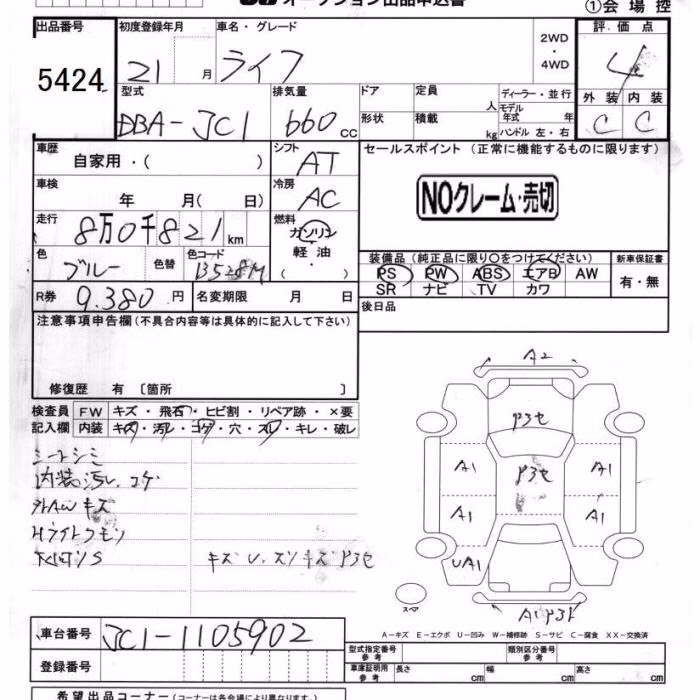 オークション出品申込書
①会 場 控
出品番号 初度登録年月 車名・グレード 2WD・4WD 評 価 点
5424 21 月 ライフ 4
型式 排気量 ドア 定員 人 ディーラー・並行 外 装 内 装
DBA-JC1 660 CC 形状 積載 kg モデル年式 年 ハンドル 左・右 C C
車歴 自家用・( ) シフト AT セールスポイント (正常に機能するものに限ります)
車検 年 月( 日) 冷房 AC NOクレーム・売切
走行 8万0千821 km 燃料 ガソリン 軽油 ( )
色 ブルー 色替 色コード B528M 装備品 (純正品に限り〇をつけてください) 新車保証書
PS PW ABS エアB AW 有・無
SR ナビ TV カワ
R券 9.380 円 名変期限 月 日 後日品
注意事項申告欄 (不具合内容等は具体的に記入して下さい)
修復歴 有 〔箇所 〕
検査員 FW キズ・飛石・ヒビ割・リペア跡・×要
記入欄 内装 キズ・汚レ・コゲ・穴・スレ・キレ・破レ
シートシミ
内装汚レ、コゲ
外AWキズ
Hライトクモリ
キズ U、スリキズ
A2
A1 A1
A1 A1
UA1
スペア
A-キズ E-エクボ U-凹み W-補修跡 S-サビ C-腐食 XX-交換済
車台番号 JC1-1105902
登録番号
型式指定番号 参考 類別区分番号 参考
車庫証明用 参考 長さ cm 幅 cm 高さ cm
希望出品コーナー (コーナーは各会場により異なります)